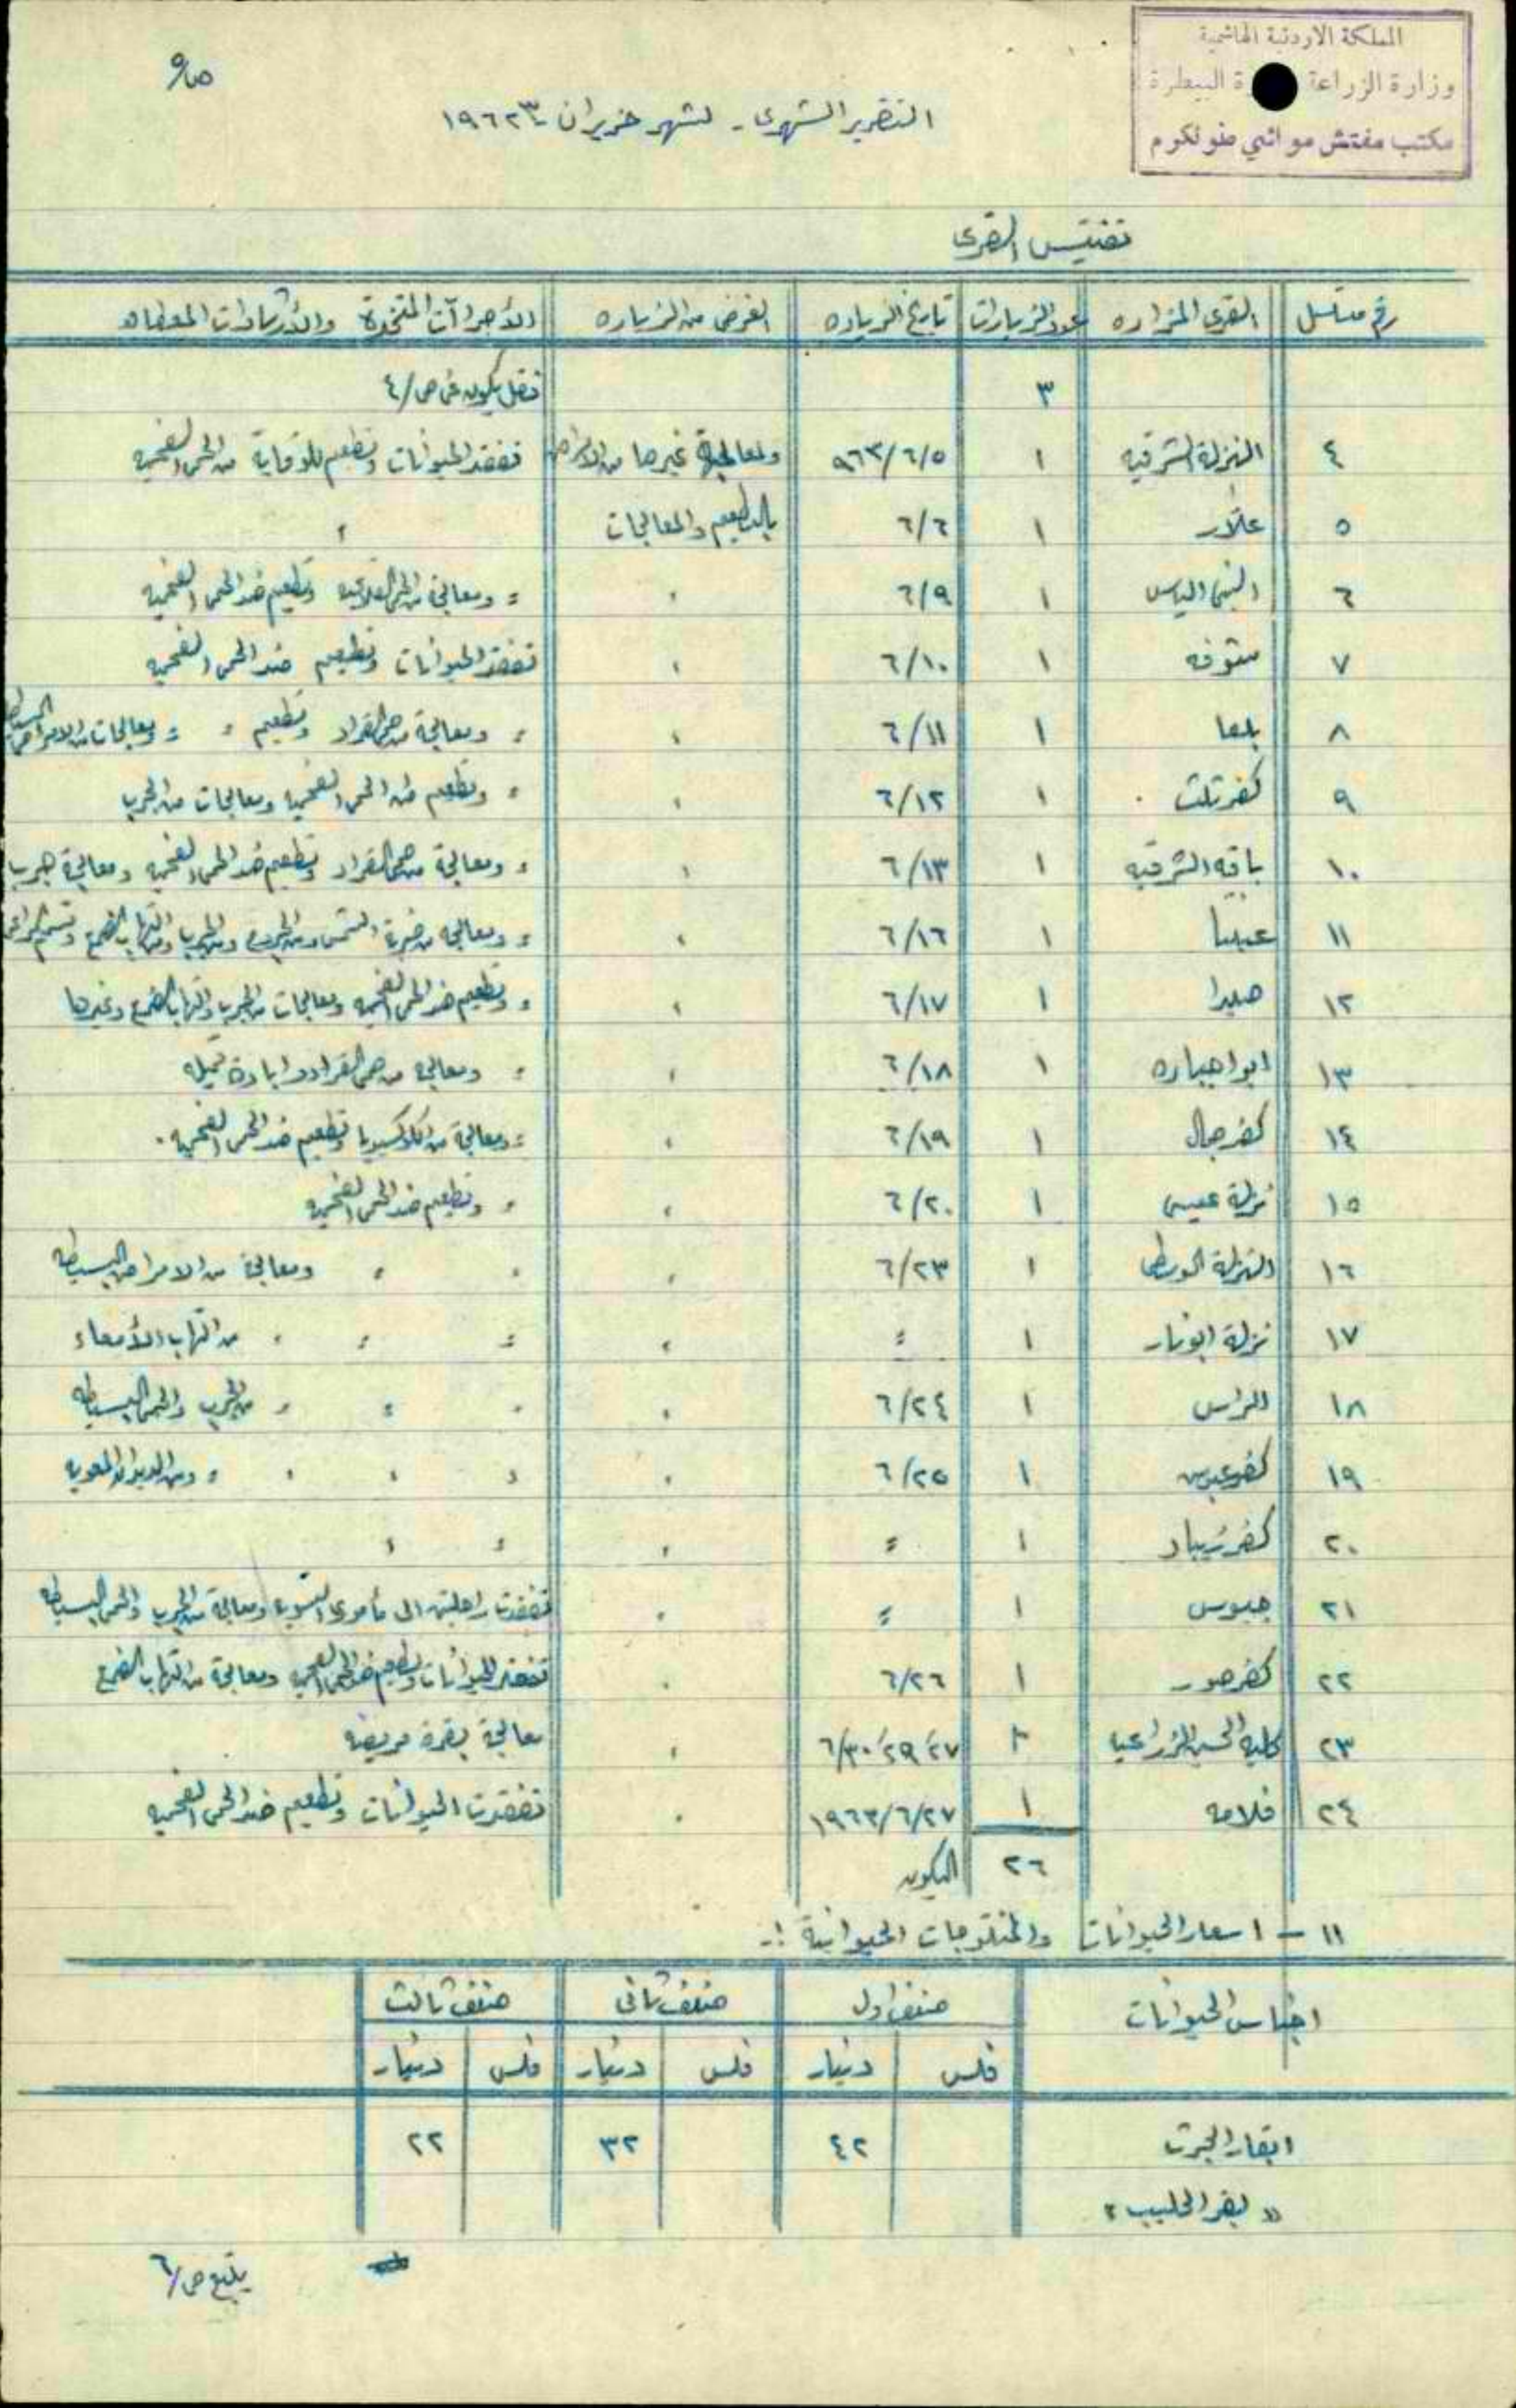 المملكة الاردنية الهاشمية
وزارة الزراعة رة البيطرة
مكتب مفتش مواشي طولكرم
ص٥
التقرير الشهري - لشهر حزيران ١٩٦٣
تفتيش القرى
رقم متسلسل القرى المزاره عدد الزيارات تاريخ الزياره الغرض من الزياره الأجراآت المتخذة والأرشادات المعطاه
٣ نقل يكون في ص/٤
٤ النزلة الشرقيه ١ ٩٦٣/٦/٥ ولمعالجة غيرها من الامراض تفقد الحيوانات وتطعيم للوقاية من الحمى الفحميه
٥ علار ١ ٦/٦ بالتطعيم والمعالجات "
٦ النبي الياس ١ ٦/٩ " " ومعالجة من الحمى القلاعيه وتطعيم ضد الحمى الفحميه
٧ شوفه ١ ٦/١٠ " تفقد الحيوانات وتطعيم ضد الحمى الفحميه
٨ بلعا ١ ٦/١١ " " ومعالجة من حمى القراد وتطعيم " " ومعالجات من الامراض البسيطه
٩ كفر ثلث ١ ٦/١٢ " " وتطعيم ضد الحمى الفحميه ومعالجات من الجرب
١٠ باقه الشرقيه ١ ٦/١٣ " " ومعالجة من حمى القراد وتطعيم ضد الحمى الفحميه ومعالجة جرب
١١ عنبتا ١ ٦/١٦ " " ومعالجه من ضربة الشمس ومن الجرب والتهاب الضرع
١٢ صيدا ١ ٦/١٧ " " وتطعيم ضد الحمى الفحميه ومعالجات من الجرب والتهاب الضرع وغيرها
١٣ ابو اجباره ١ ٦/١٨ " " ومعالجه من حمى القراد وابادة
١٤ كفر جمال ١ ٦/١٩ " " ومعالجة من الكوكسيديا وتطعيم ضد الحمى الفحميه .
١٥ نزلة عيسى ١ ٦/٢٠ " " وتطعيم ضد الحمى الفحميه
١٦ النزلة الوسطى ١ ٦/٢٣ " " " ومعالجة من الامراض البسيطه
١٧ نزلة ابو نار ١ " " " " " من التهاب الأمعاء
١٨ الراس ١ ٦/٢٤ " " " " من الجرب والحمى البسيطه
١٩ كفر عبوش ١ ٦/٢٥ " " " " " ومن الديدان المعويه
٢٠ كفر زيباد ١ " " " "
٢١ جيوس ١ " " تفقدت راحلتين الى مأموري التسويه ومعالجة من الجرب والحمى البسيطه
٢٢ كفر صور ١ ٦/٢٦ " تفقد الحيوانات وتطعيم ضد الحمى الفحميه ومعالجة من التهاب الضرع
٢٣ كلية الحسين الزراعيه ٣ ٦/٣٠،٢٩،٢٧ " معالجة بقرة مريضه
٢٤ فلامه ١ ١٩٦٣/٦/٢٧ " تفقدت الحيوانات وتطعيم ضد الحمى الفحميه
٢٦ اليكون
١١ - اسعار الحيوانات والمنتوجات الحيوانية :-
اجناس الحيوانات صنف اول صنف ثاني صنف ثالث
فلس دينار فلس دينار فلس دينار
ابقار الحرث ٤٢ ٣٢ ٢٢
" بقر الحليب "
يتبع ص/٦